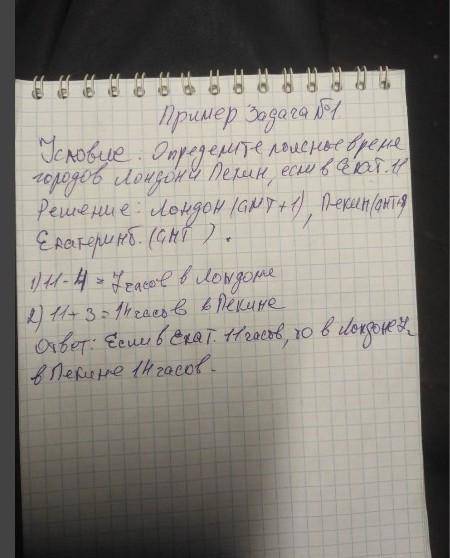 Пример Задача №1
Условие: Определите поясное время
городов Лондон и Пекин, если в Екат. 11
Решение: Лондон (GMT+1), Пекин (GMT+
Екатеринб. (GMT ).
1) 11-4 = 7 часов в Лондоне
2) 11+3 = 14 часов в Пекине
Ответ: Если в Екат. 11 часов, то в Лондоне 7,
в Пекине 14 часов.